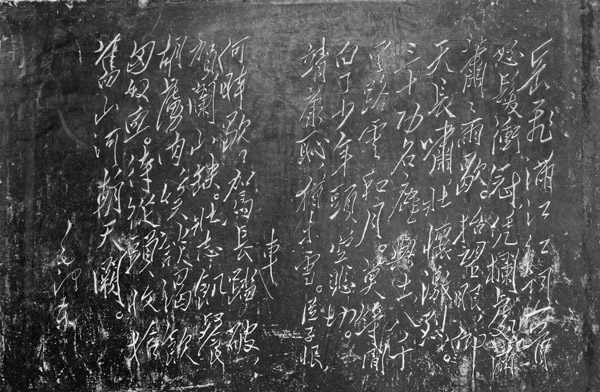 岳飛滿江紅詞一首
怒髮衝冠凭欄處
瀟々雨歇。抬望眼,仰
天長嘯壮懷激烈。
三十功名塵與土八千
里路雲和月。莫等閒
白了少年頭空悲切。
靖康恥猶未雪。臣子恨
何時歇,駕長車踏破,
賀蘭山缺。壮志飢餐
胡虜肉笑談渴飲
匈奴血。待從頭收拾
舊山河朝天闕。
毛泽东